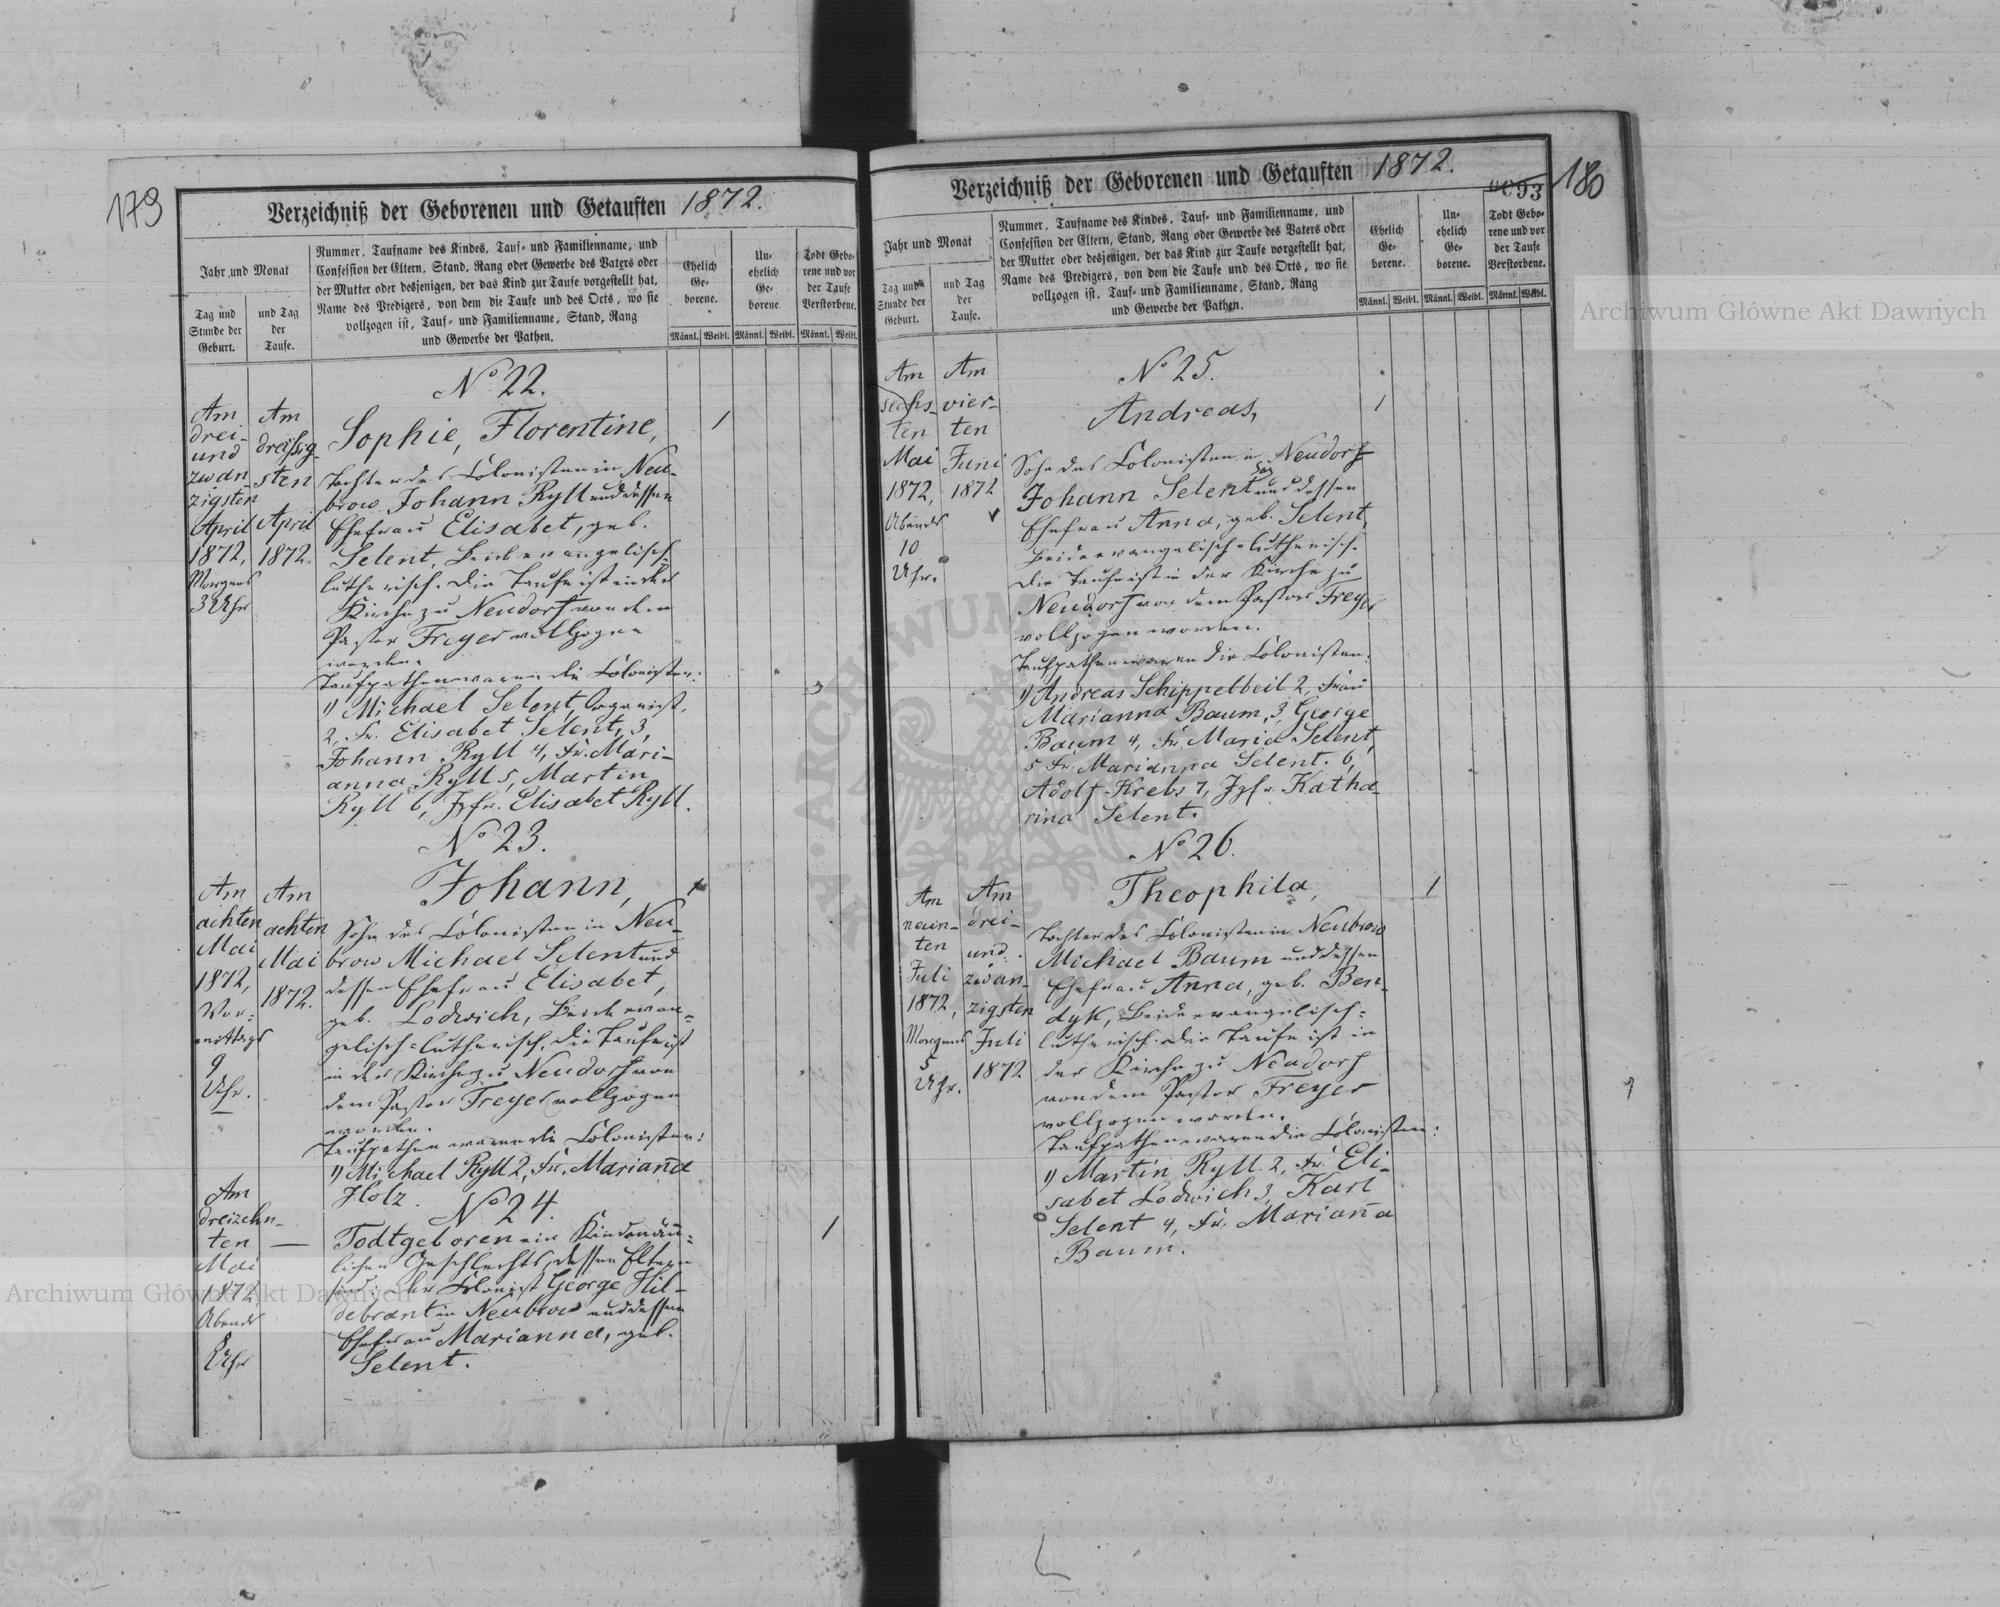 179
Verzeichniß der Geborenen und Getauften 1872.
Jahr und Monat
Tag und Stunde der Geburt.
und Tag der Taufe.
Nummer, Taufname des Kindes, Tauf- und Familienname, und
Confession der Eltern, Stand, Rang oder Gewerbe des Vaters oder
der Mutter oder desjenigen, der das Kind zur Taufe vorgestellt hat,
Name des Predigers, von dem die Taufe und des Orts, wo sie
vollzogen ist, Tauf- und Familienname, Stand, Rang
und Gewerbe der Pathen.
Ehelich Geborene.
Unehelich Geborene.
Todt Geborene und vor der Taufe Verstorbene.
Männl. Weibl. Männl. Weibl. Männl. Weibl.
Am
drei-
und
zwan
zigsten
April
1872,
Morgens
3 Uhr
Am
dreißig-
sten
April
1872.
No 22.
Sophie, Florentine,
Tochter des Colonisten in Neu-
brow Johann Ryll und dessen
Ehefrau Elisabet, geb.
Selent, Beide evangelisch-
lutherisch. Die Taufe ist in der
Kirche zu Neudorf von dem
Pastor Freyer vollzogen
worden.
Taufpathen waren die Colonisten:
1) Michael Selent, Organist,
2, Fr. Elisabet Selent, 3,
Johann Ryll 4, Fr. Mari-
anna Ryll 5, Martin
Ryll 6, Jgfr. Elisabet Ryll.
1
Am
achten
Mai
1872,
Vor-
mittags
9
Uhr.
Am
achten
Mai
1872.
No 23.
Johann,
Sohn des Colonisten in Neu-
brow Michael Selent und
dessen Ehefrau Elisabet,
geb. Lodwich, Beide evan-
gelisch=lutherisch. Die Taufe ist
in der Kirche zu Neudorf von
dem Pastor Freyer vollzogen
worden.
Taufpathen waren die Colonisten:
1) Michael Ryll 2, Fr. Marian̄a
Holz.
1
Am
dreizehn-
ten
Mai
1872,
Abends
8
Uhr
—
No 24.
Todtgeboren ein Kind män̄-
lichen Geschlechts, dessen Eltern
sind: der Colonist George Hil-
debrant in Neubrow und dessen
Ehefrau Marianna, geb.
Selent.
1
180
Verzeichniß der Geborenen und Getauften 1872.
Jahr und Monat
Tag und Stunde der Geburt.
und Tag der Taufe.
Nummer, Taufname des Kindes, Tauf- und Familienname, und
Confession der Eltern, Stand, Rang oder Gewerbe des Vaters oder
der Mutter oder desjenigen, der das Kind zur Taufe vorgestellt hat,
Name des Predigers, von dem die Taufe und des Orts, wo sie
vollzogen ist, Tauf- und Familienname, Stand, Rang
und Gewerbe der Pathen.
Ehelich Geborene.
Unehelich Geborene.
Todt Geborene und vor der Taufe Verstorbene.
Männl. Weibl. Männl. Weibl. Männl. Weibl.
Am
sechs-
ten
Mai
1872,
Abends
10
Uhr.
Am
vier-
ten
Juni
1872
No 25.
Andreas,
Sohn des Colonisten in Neudorf
Johann Selent und dessen
Ehefrau Anna, geb. Selent,
Beide evangelisch=lutherisch.
Die Taufe ist in der Kirche zu
Neudorf von dem Pastor Freyer
vollzogen worden.
Taufpathen waren die Colonisten:
1) Andreas Schippelbeil 2, Frau
Marianna Baum, 3, George
Baum 4, Fr. Maria Selent,
5 Fr. Marianna Selent. 6,
Adolf Krebs 7, Jgfr. Katha-
rina Selent.
1
Am
neun-
ten
Juli
1872,
Morgens
5
Uhr.
Am
drei-
und
zwan-
zigsten
Juli
1872
No 26.
Theophila,
Tochter des Colonisten in Neubrow
Michael Baum und dessen
Ehefrau Anna, geb. Ben-
dyk, Beide evangelisch=
lutherisch. Die Taufe ist in
der Kirche zu Neudorf
von dem Pastor Freyer
vollzogen worden.
Taufpathen waren die Colonisten:
1) Martin Ryll. 2, Fr. Eli-
sabet Lodwich 3, Karl
Selent 4, Fr. Marian̄a
Baum.
1
Archiwum Główne Akt Dawnych
Archiwum Główne Akt Dawnych